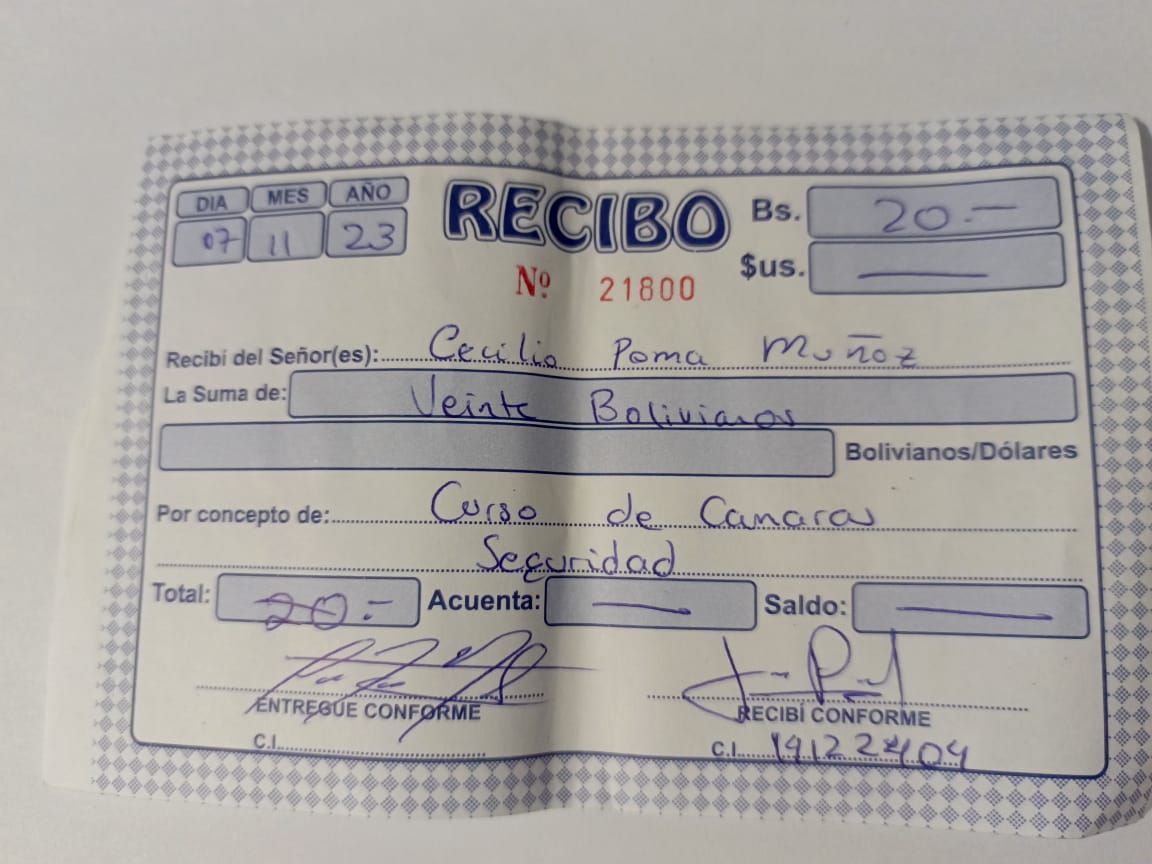 DIA MES AÑO
07 11 23
RECIBO
Bs. 20.-
$us.
Nº 21800
Recibí del Señor(es): Cecilio Poma Muñoz
La Suma de: Veinte Bolivianos
Bolivianos/Dólares
Por concepto de: Curso de Camaras
Seguridad
Total: 20.- Acuenta: Saldo:
ENTREGUE CONFORME RECIBÍ CONFORME
C.I. C.I.